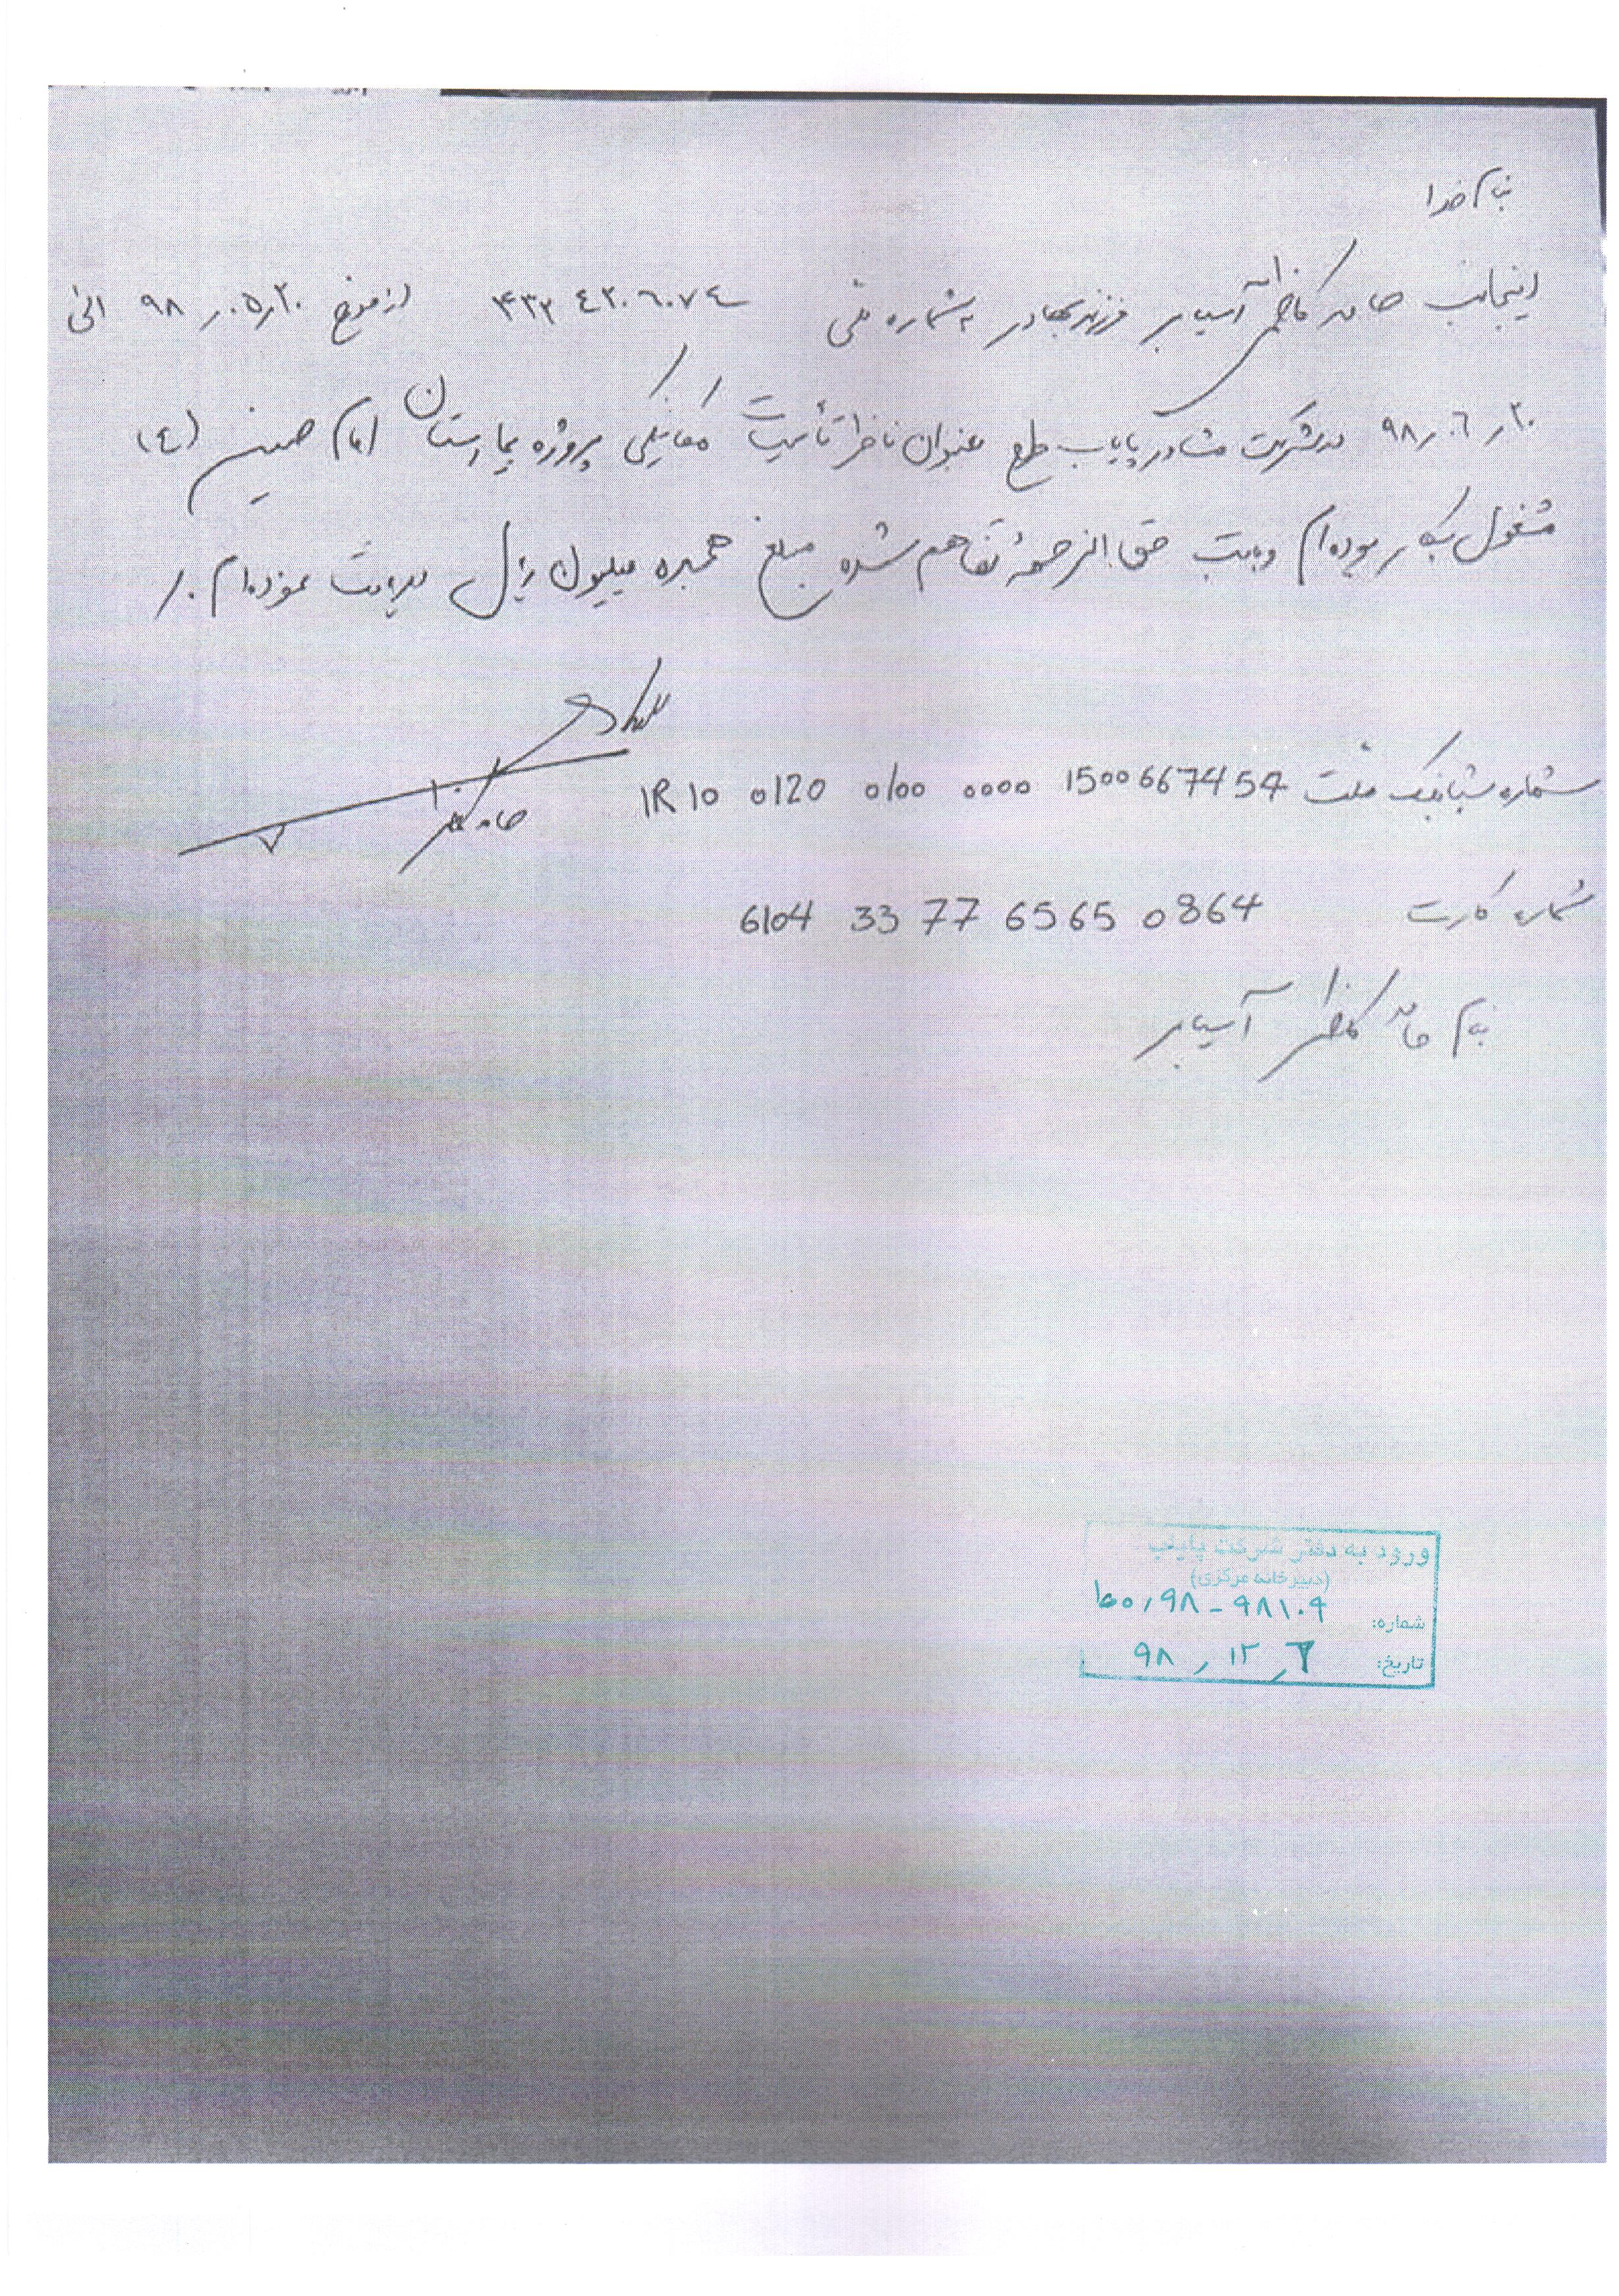 بنام خدا
اینجانب حامد کاظمی آسیابر فرزند بهادر به شماره ملی ۴۳۰۶۰۷۴ از مورخ ۹۸٫۰۵٫۲۰ الی
۹۸٫۰۶٫۲۰ در شرکت مشاور پایاب طرح بعنوان ناظر تأسیسات مکانیکی پروژه بیمارستان امام حسین (ع)
مشغول بکار بوده ام و بابت حق الزحمه تفاهم شده مبلغ هجده میلیون ریال دریافت نموده ام ./
شماره شبا بانک ملت IR 10 0120 0100 0000 1500667454
حامد کاظمی
شماره کارت 6104 33 77 6565 0864
بنام حامد کاظمی آسیابر
ورود به دفتر شرکت پایاب
(دبیرخانه مرکزی)
شماره: ۹۸۱۰۹ - ۹۸٫
تاریخ: ۹۸٫۱۲٫۶